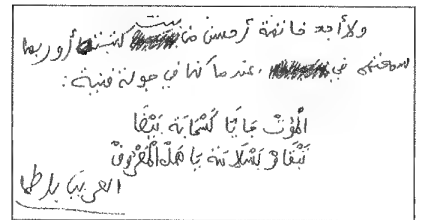 ولا أجد خاتمة أحسن من بيت كتبته أوربما
سمعته في عندما كنا في جولة فنية:
الموت جايا كسحابة
تبقاو بسلامة يا هل المعروف
العربي باطما